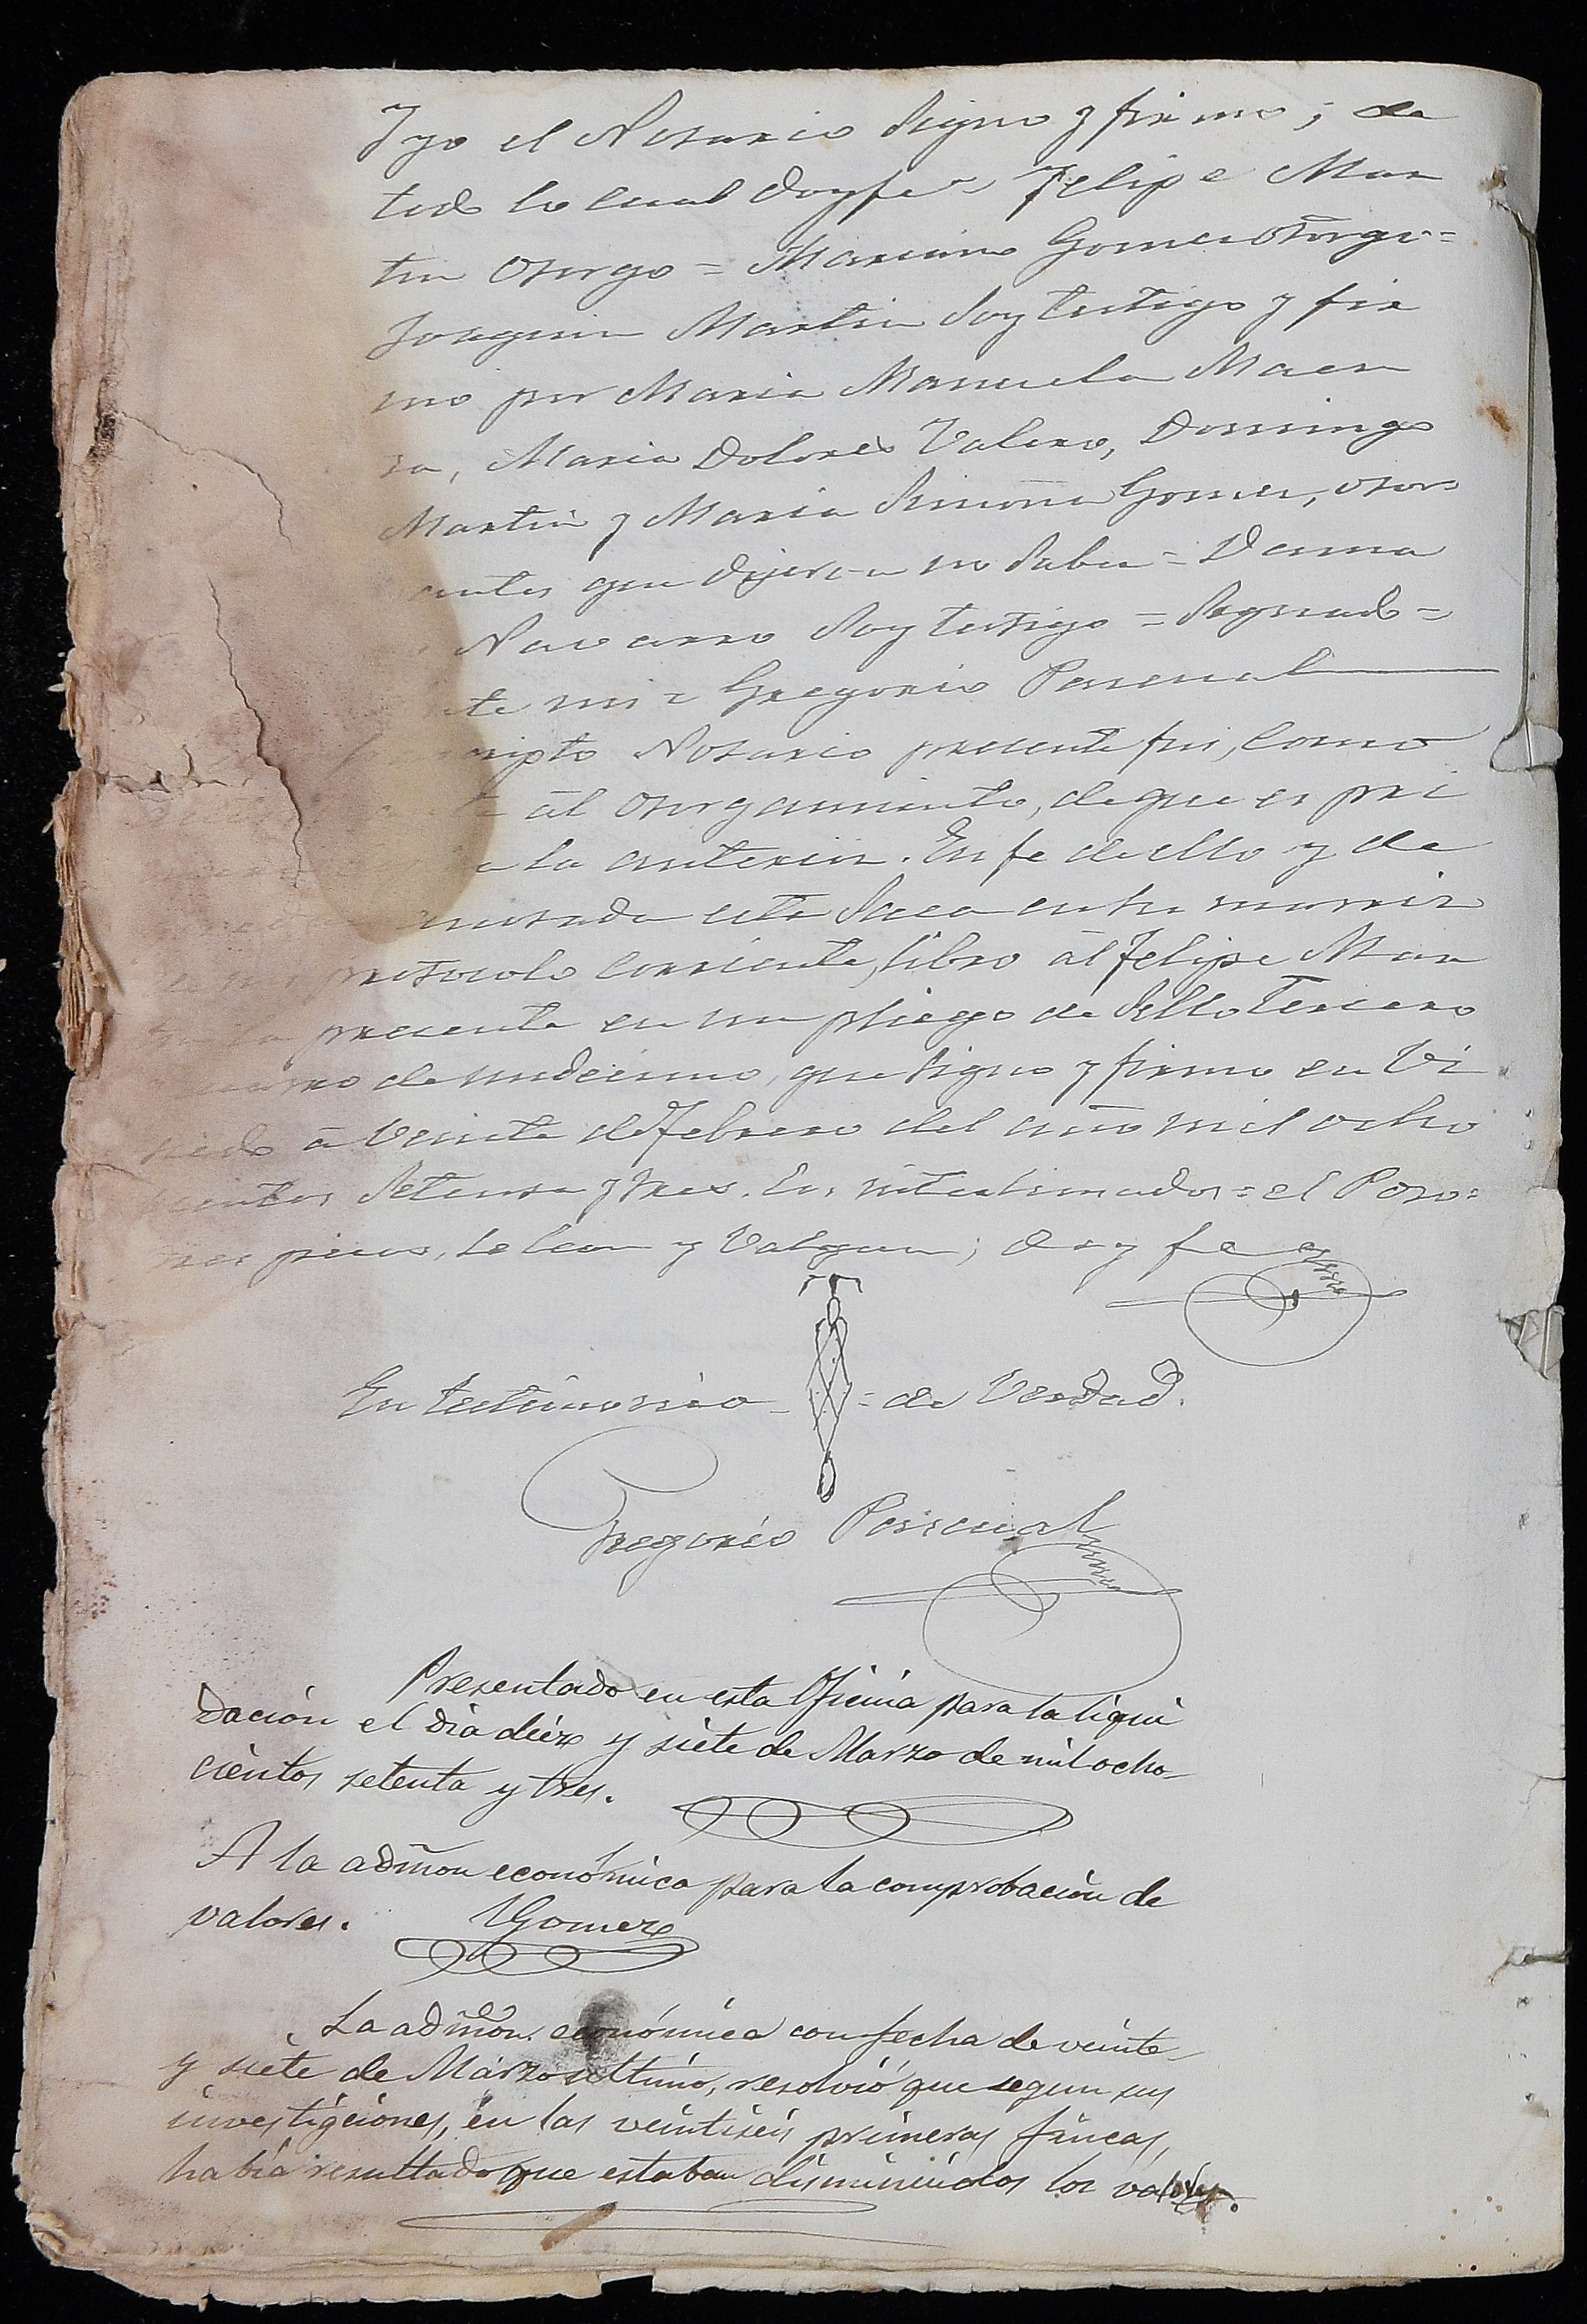 Y yo el Notario signo y firmo; de
todo lo cual doy fe = Felipe Mar
tin otorgo = Mariano Gomez otorgo =
Joaquin Martin soy testigo y fir
mo por Maria Manuela Maen
za, Maria Dolores Valero, Domingo
Martin y Maria Simona Gomez, otor
antes que dijeron no saber =
Navarro soy testigo = Signado =
te mi = Gregorio Pascual
cripto Notario presente fui, como
al otorgamiento, de que es pri
la anterior. En fe de ello y de
anotada esta saca en su matriz
protocolo corriente, libro al Felipe Mar
presente en un pliego de Sello Tercero
de undecimo, que signo y firmo en Vi
sedo a veinte de Febrero del año mil ocho
cientos setenta y tres. Los interlineados = el Pozo =
tres picos, se lean y valgan; doy fe
En testimonio = = de Verdad.
Gregorio Pascual
Presentado en esta Oficina para la liqui
dación el dia diez y siete de Marzo de mil ocho-
cientos setenta y tres.
A la admon económica para la comprobación de
valores. Gomez
La admon. económica con fecha de veinte-
y siete de Marzo ultimo, resolvió que segun sus
investigciones, en las veintiseis primeras fincas,
había resultado que estaban disminuidos los valores.